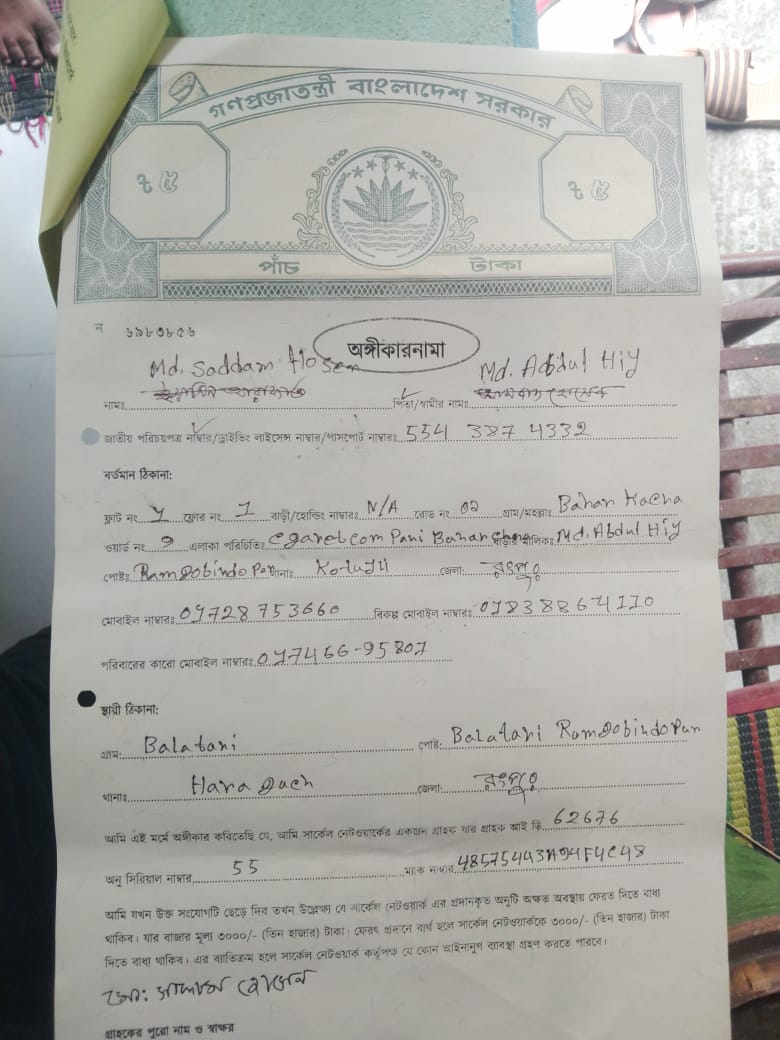 গণপ্রজাতন্ত্রী বাংলাদেশ সরকার
৳ ৫ ৳ ৫
পাঁচ টাকা
ন ৬৯৮৩৮৫৬
অঙ্গীকারনামা
Md. Saddam Hosen Md. Abdul Hiy
নামঃ পিতা/স্বামীর নামঃ
জাতীয় পরিচয়পত্র নাম্বার/ড্রাইভিং লাইসেন্স নাম্বার/পাসপোর্ট নাম্বারঃ 554 387 4332
বর্তমান ঠিকানা:
ফ্লাট নং ফ্লোর নং 1 বাড়ী/হোল্ডিং নাম্বারঃ N/A রোড নং 02 গ্রাম/মহল্লাঃ Bahar Kacha
ওয়ার্ড নং 9 এলাকা পরিচিতিঃ Pani Bahar বাড়ীর মালিকঃ Md. Abdul Hiy
পোষ্টঃ Ramgobindo থানাঃ জেলা: রংপুর
মোবাইল নাম্বারঃ 01728 753660 বিকল্প মোবাইল নাম্বারঃ 01838864110
পরিবারের কারো মোবাইল নাম্বারঃ 017466-95807
স্থায়ী ঠিকানা:
গ্রাম: Balatari পোষ্ট: Balatari Ramgobindo
থানাঃ Haragach জেলা: রংপুর
আমি এই মর্মে অঙ্গীকার করিতেছি যে, আমি সার্কেল নেটওয়ার্কের একজন গ্রাহক যার গ্রাহক আই ডি 62676
অনু সিরিয়াল নাম্বার 55 ম্যাক নাম্বার 48575443A94F4C48
আমি যখন উক্ত সংযোগটি ছেড়ে দিব তখন উল্লেখ্য যে সার্কেল নেটওয়ার্ক এর প্রদানকৃত অনুটি অক্ষত অবস্থায় ফেরত দিতে বাধ্য
থাকিব। যার বাজার মূল্য ৩০০০/- (তিন হাজার) টাকা। ফেরৎ প্রদানে ব্যর্থ হলে সার্কেল নেটওয়ার্ককে ৩০০০/- (তিন হাজার) টাকা
দিতে বাধ্য থাকিব। এর ব্যতিক্রম হলে সার্কেল নেটওয়ার্ক কর্তৃপক্ষ যে কোন আইনানুগ ব্যবস্থা গ্রহণ করতে পারবে।
মো: সাদ্দাম হোসেন
গ্রাহকের পুরো নাম ও স্বাক্ষর